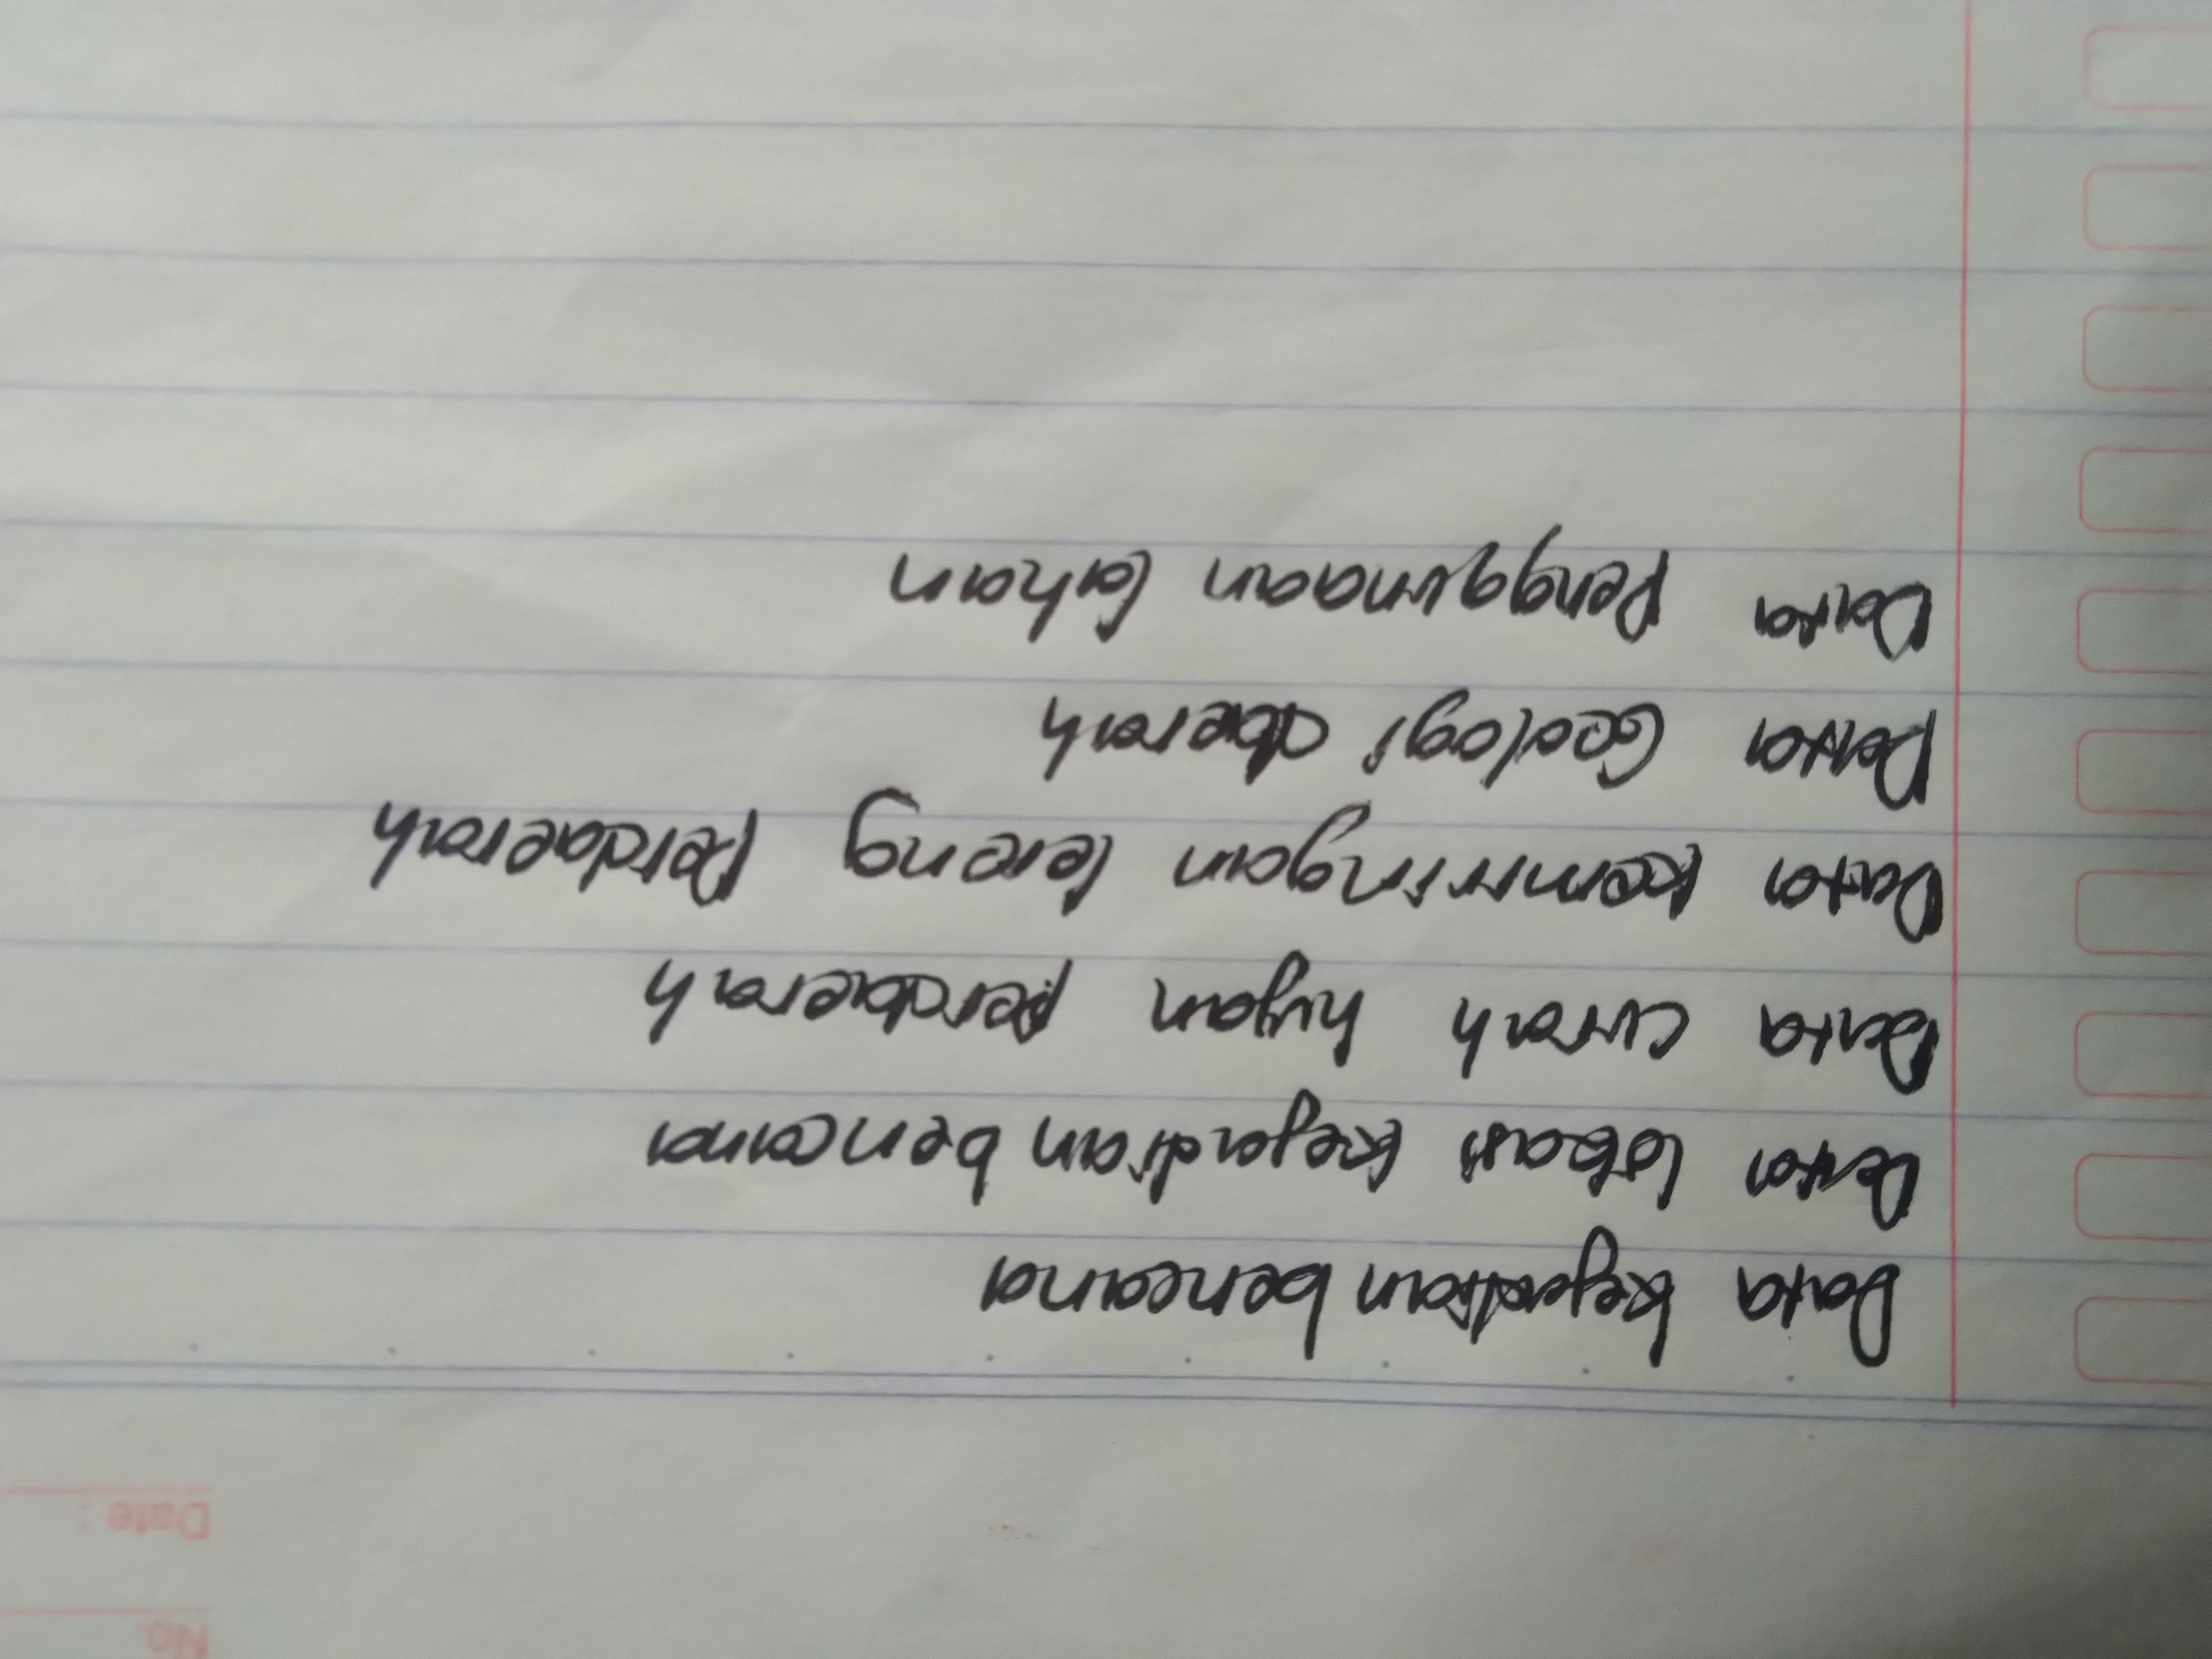 No.
Date :
Data kejadian bencana
Data lokasi kejadian bencana
Data curah hujan perdaerah
Data kemiringan lereng perdaerah
Data Geologi daerah
Data Penggunaan lahan